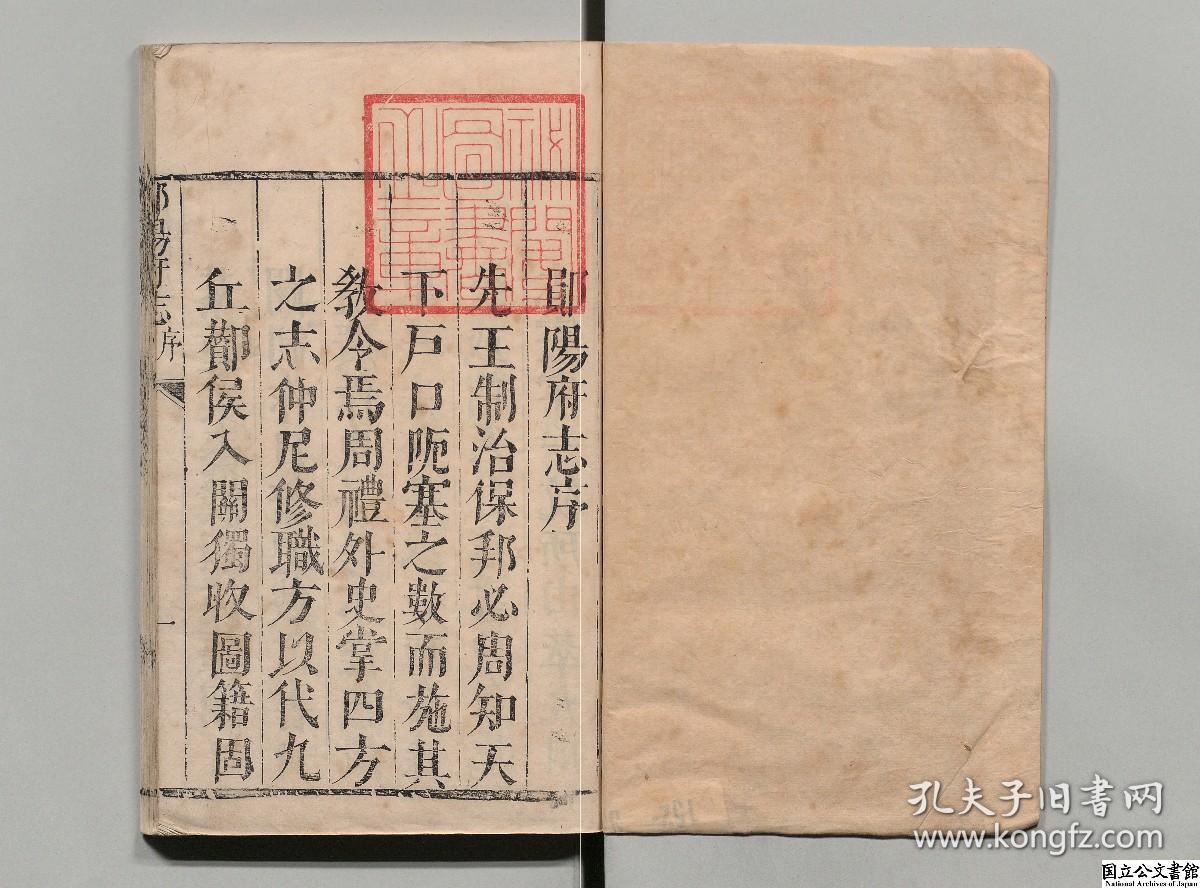 鄖陽府志序
先王制治保邦必周知天
下戶口阨塞之數而施其
教令焉周禮外史掌四方
之志仲尼修職方以代九
丘酇侯入關獨收圖籍固
鄖陽府志 序
一
秘閣圖書之章
孔夫子旧书网
www.kongfz.com
国立公文書館
National Archives of Japan